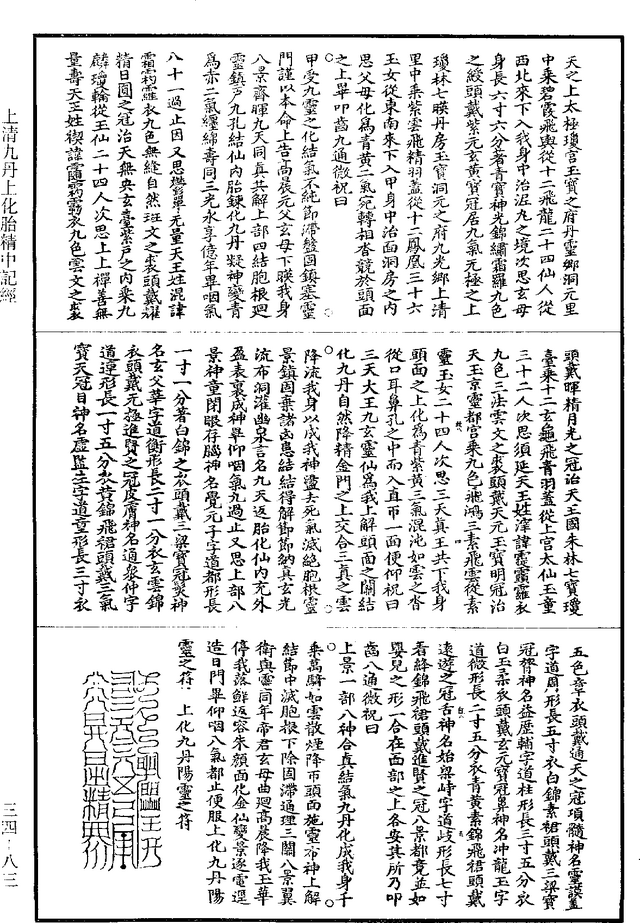 天之上太極瓊宮玉寶之府丹靈鄉洞元里
中乘碧霞飛輿從十二飛龍二十四仙人從
西北來下入我身中治泥丸之境次思玄母
身長六寸六分著青寶神光錦繡霜羅九色
之綬頭戴紫元玄黃寶冠居九氣元極之上
瓊林七暎丹房玉寶洞元之府九光鄉上清
里中乘紫雲飛精羽蓋從十二鳳凰三十六
玉女從東南來下入甲身中治面洞房之內
思父母化為青黃二氣宛轉相沓競於頭面
之上畢叩齒九通微祝曰
甲受九靈之化結氣不純節滯盤固鎮塞靈
門謹以本命上告高晨元父玄母下暎我身
八景齊暉九天同真共解上部四結胞根迴
靈鎮戶九孔結仙內胎鍊化九丹凝神變青
為赤二氣纏綿壽同三光永享億年畢咽氣
八十一過止因又思欝單元量天王姓混諱
霜羅衣九色無縫自然班文之裘頭戴耀
精日圓之冠治天無央玄臺紫戶之內乘九
麟瓊輪從玉仙二十四人次思上上禪善無
量壽天王姓禊諱衣九色雲文之裘
頭戴暉精月光之冠治天王國朱林七寶瓊
臺乘十二玄龜飛青羽蓋從上宮太仙玉童
三十二人次思須延天王姓滓諱羅衣
九色三法雲文之裘頭戴天元玉寶明冠治
天王京靈都宮乘九色飛鴻三素飛雲從素
靈玉女二十四人次思三天真王共下我身
頭面之上化為青紫黃三氣混沌如雲之沓
從口耳鼻孔之中而入直帀一面便仰祝曰
三天大王九玄靈仙為我上解頭面之關結
化九丹自然降精金門之上交合三真之雲
降流我身以成我神盪去死氣滅絕胞根靈
景鎮固棄諸凶患結結得解節節納真玄光
流布洞灌幽泉言名九天返胎化仙內充外
盈表裏成神畢仰咽氣九過止又思上部八
景神童閉眼存腦神名覺元子字道都形長
一寸一分著白錦之衣頭戴三梁寶冠髮神
名玄父華字道衡形長二寸一分衣玄雲錦
衣頭戴元極進賢之冠皮膚神名通眾仲字
道連形長一寸五分衣黃錦飛裙頭戴三氣
寶天冠目神名虛監字道童形長三寸衣
五色章衣頭戴通天之冠項髓神名靈謨蓋
字道周形長五寸衣白錦素裙頭戴三梁寶
冠膂神名益歷輔字道柱形長三寸五分衣
白玉素衣頭戴玄元寶冠鼻神名沖龍玉字
道微形長二寸五分衣青黃素錦飛裙頭戴
遠遊之冠舌神名始梁峙字道歧形長七寸
著絳錦飛裙頭戴進賢之冠八景都竟並如
嬰兒之形一合在面部之上各安其所乃叩
齒八通微祝曰
上景一部八神合真結氣九丹化成我身千
乘萬騎如雲散煙降帀頭面施靈布神上解
結節中滅胞根下除固滯通理三關八景翼
衛與靈同年帝君玄母曲迴高晨降我玉華
停我落鮮返容朱顏面化金仙變景逐電遏
造日門畢仰咽八氣都止便服上化九丹陽
靈之符
上化九丹陽靈之符
上清九丹上化胎精中記經
三四－八三